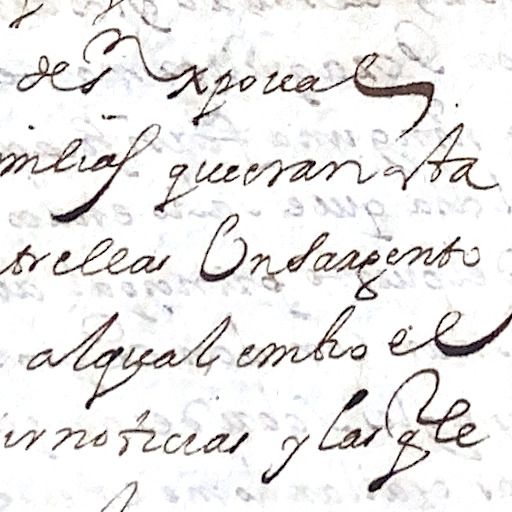 de sn xpoual
milias que eran asta
trellas Un Sargento
alqual embio el
ir noticias y las q le